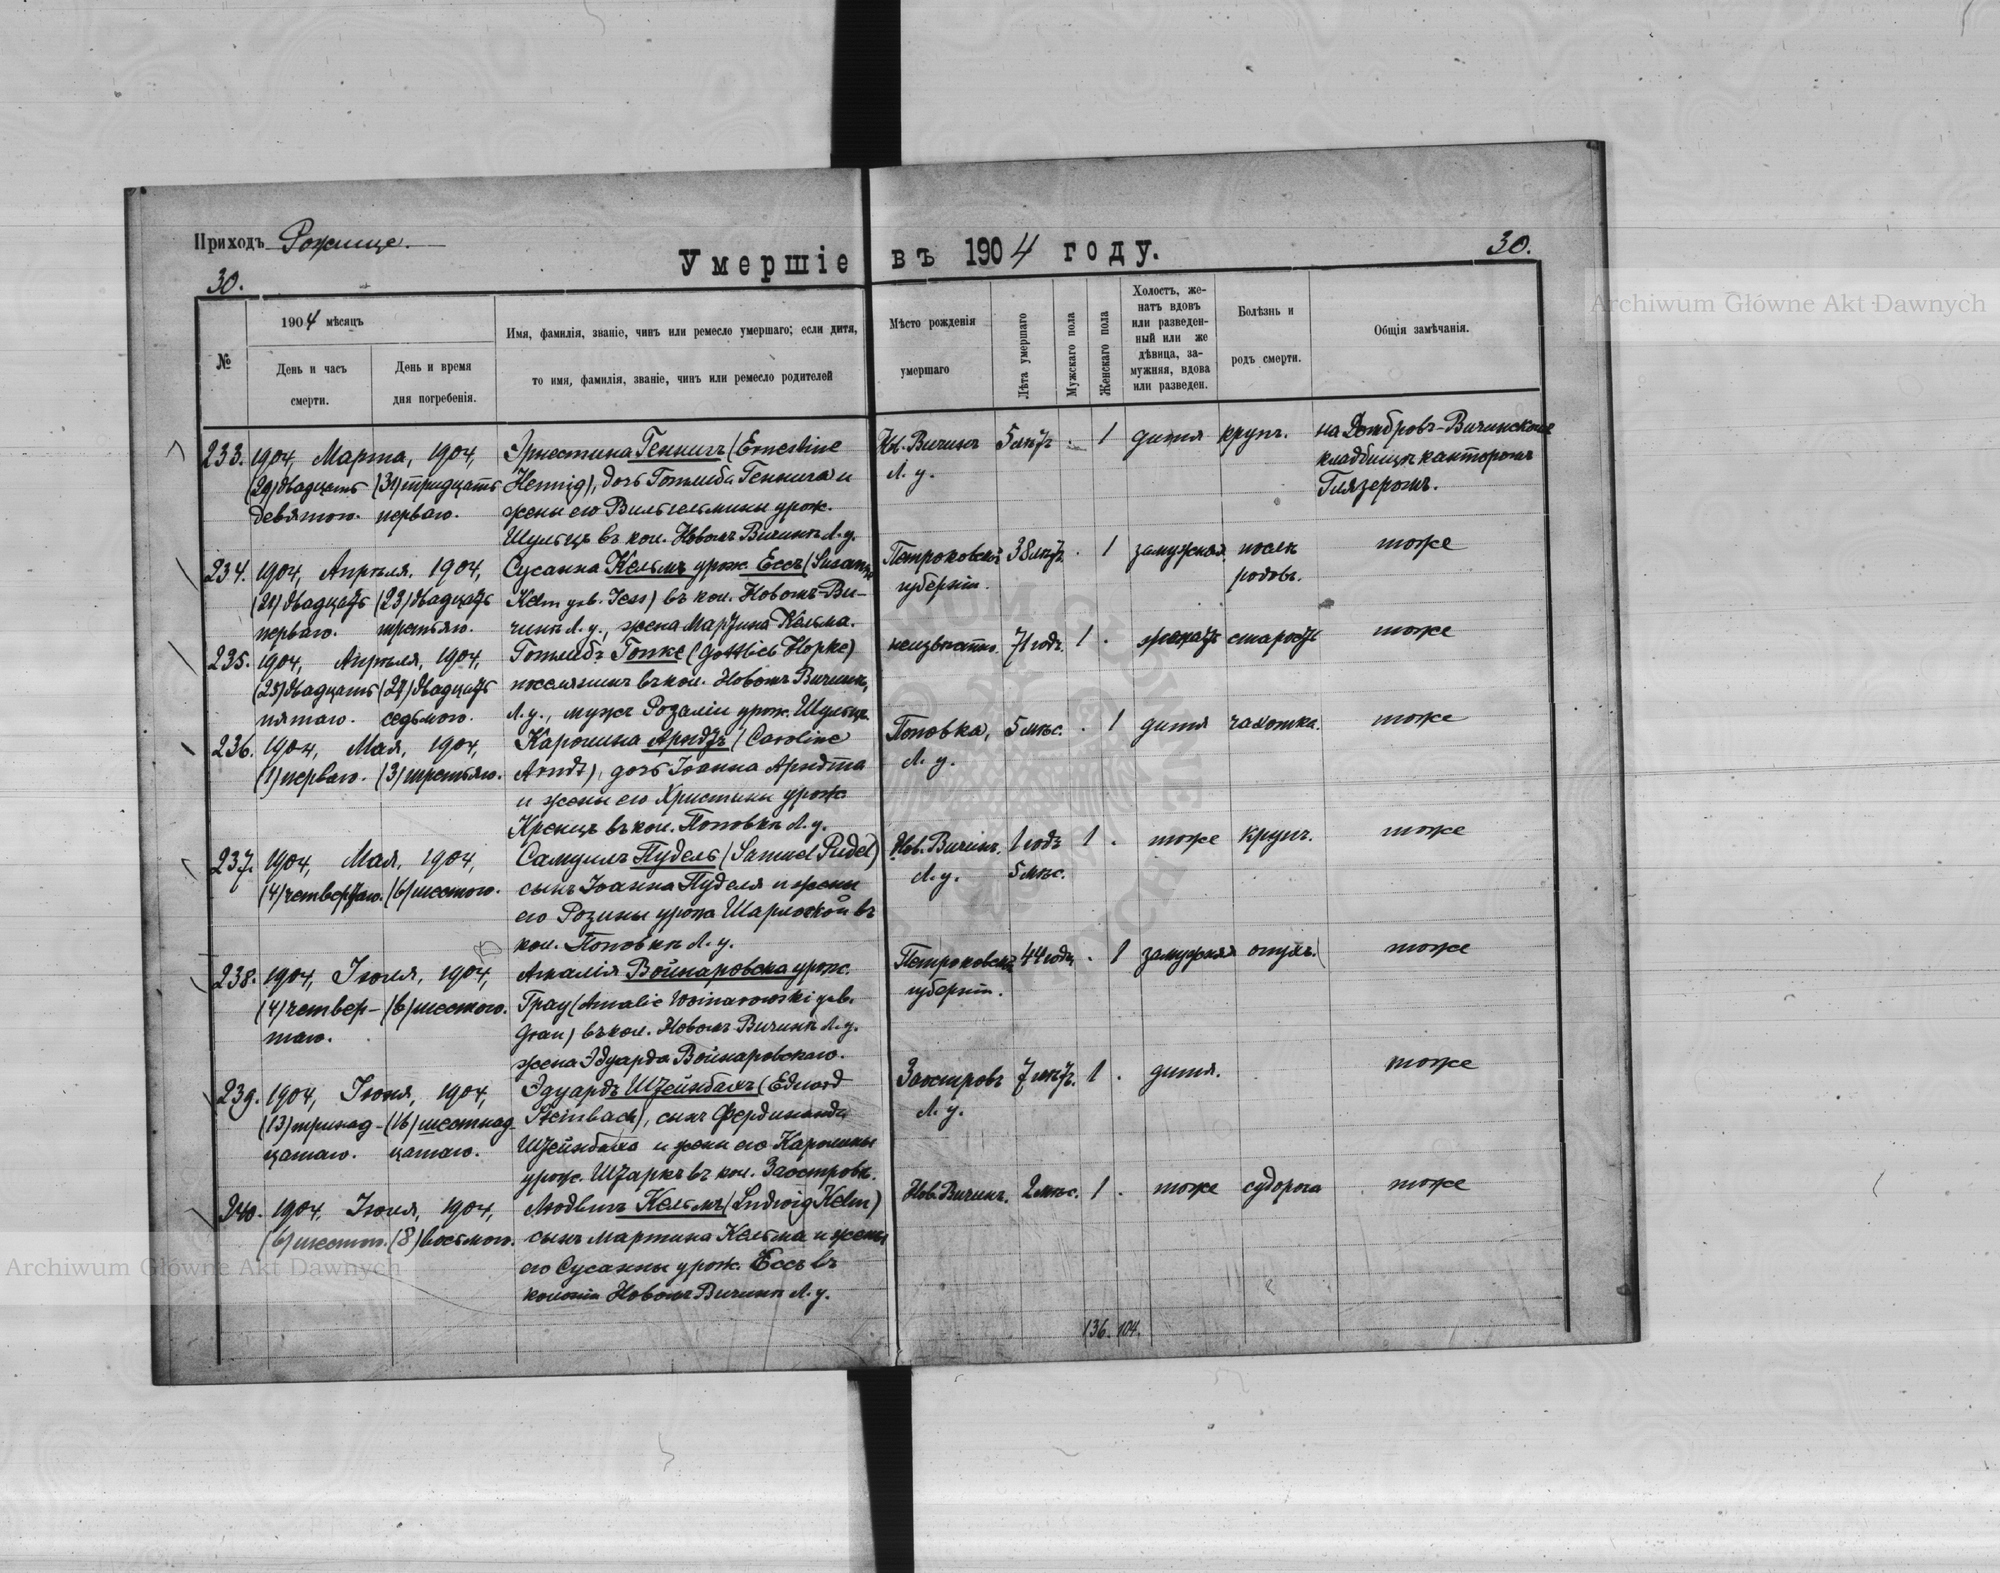 Приходъ Рожище.
Умершіе въ 1904 году.
30.
30.
№
1904 мѣсяцъ
День и часъ
смерти.
День и время
дня погребенія.
Имя, фамилія, званіе, чинъ или ремесло умершаго; если дитя,
то имя, фамилія, званіе, чинъ или ремесло родителей
Мѣсто рожденія
умершаго
Лѣта умершаго
Мужскаго пола
Женскаго пола
Холостъ, же-
натъ вдовъ
или разведен-
ный или же
дѣвица, за-
мужняя, вдова
или разведен.
Болѣзнь и
родъ смерти.
Общія замѣчанія.
233. 1904, Марта, 1904, Эрнестина Геннигъ (Ernestine
(29) двадцать (31) тридцать Hennig), дочь Готлиба Геннига и
девятого. перваго. жены его Вильгельмины урож.
Шульцъ въ кол. Новомъ Вичинѣ Л. у.
Нов. Вичинъ 5 лѣтъ . 1 дитя крупъ. на Домбровъ-Вичинскомъ
Л. у. кладбищѣ канторомъ
Глязеромъ.
234. 1904, Апрѣля, 1904, Сусанна Кельмъ урож. Ессъ (Susanne
(21) двадцать (23) двадцать Kelm geb. Jess) въ кол. Новомъ-Ви-
перваго. третьяго. чинѣ Л. у., жена Мартина Кельма.
Петроковской 38 лѣтъ . 1 замужняя послѣ тоже
губерніи. родовъ.
235. 1904, Апрѣля, 1904, Готлибъ Гопке (Gottlieb Hopke)
(25) двадцать (27) двадцать поселянинъ въ кол. Новомъ Вичинѣ,
пятаго. седьмого. Л. у., мужъ Розаліи урож. Шульцъ.
неизвѣстно. 71 годъ 1 . женатъ старость тоже
236. 1904, Мая, 1904, Каролина Арндтъ (Caroline
(1) перваго. (3) третьяго. Arndt), дочь Іоанна Арндта
и жены его Христины урож.
Кренцъ въ кол. Поповкѣ Л. у.
Поповка, 5 мѣс. . 1 дитя чахотка. тоже
Л. у.
237. 1904, Мая, 1904, Самуилъ Пудель (Samuel Pudel)
(4) четвертаго. (6) шестого. сынъ Іоанна Пуделя и жены
его Розины урож. въ
кол. Поповкѣ Л. у.
Нов. Вичинъ. 1 годъ 1 . тоже крупъ. тоже
Л. у. 5 мѣс.
238. 1904, Іюля, 1904, Амалія Войнаровска урож.
(4) четвер- (6) шестого. Грау (Amalie Woinarowski geb.
таго. Grau) въ кол. Новомъ Вичинѣ Л. у.
жена Эдуарда Войнаровскаго.
Петроковской 44 года . 1 замужняя опухъ. тоже
губерніи.
239. 1904, Іюня, 1904, Эдуардъ Штейнбахъ (Eduard
(13) тринад- (16) шестнад- Steinbach), сынъ Фердинанда
цатаго. цатаго. Штейнбаха и жены его Каролины
урож. Штаркъ въ кол. Заостровѣ.
Заостровъ 7 лѣтъ. 1 . дитя. тоже
Л. у.
240. 1904, Іюля, 1904, Людвигъ Кельмъ (Ludwig Kelm)
(6) шестого. (8) восьмого. сынъ Мартина Кельма и жены
его Сусанны урож. Ессъ въ
колоніи Новомъ Вичинѣ Л. у.
Нов. Вичинъ. 2 мѣс. 1 . тоже судорога тоже
136. 104.
Archiwum Główne Akt Dawnych
Archiwum Główne Akt Dawnych